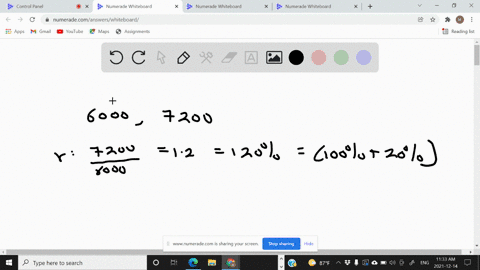 Control Panel
Numerade Whiteboard
Numerade Whiteboard
Numerade Whiteboard
numerade.com/answers/whiteboard/
Apps
Gmail
YouTube
Maps
Assignments
Reading list
6000, 7200
r: 7200/6000 = 1.2 = 120% = (100% + 20%)
www.numerade.com is sharing your screen.
Stop sharing
Hide
Type here to search
87°F
ENG
11:33 AM
2021-12-14